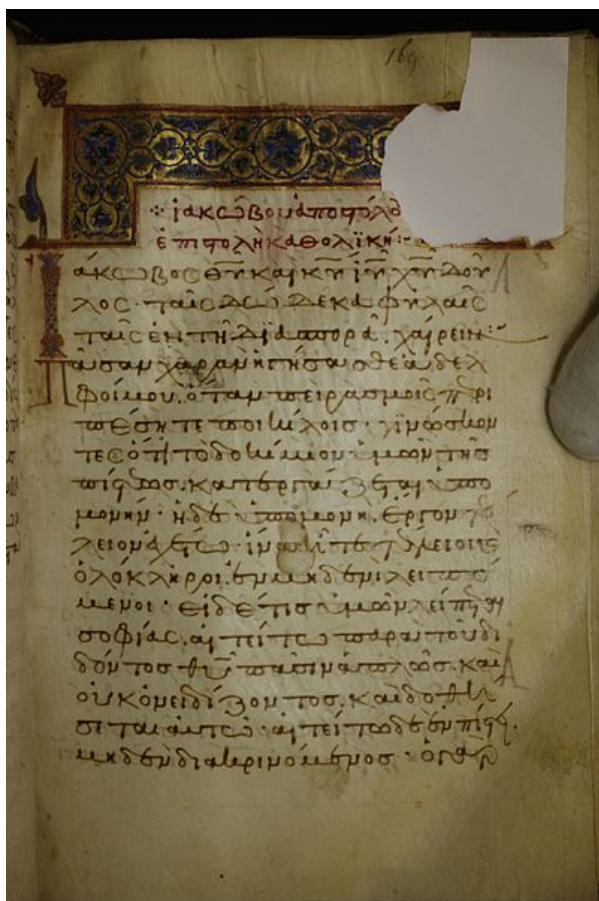 169
ἰακώβου ἀποστόλο
ἐπιστολὴ καθολική:
Ἰάκωβος θῦ καὶ κῦ ἰῦ χῦ δοῦ
λος· ταῖς δώδεκα φυλαῖς
ταῖς ἐν τῆ διασπορᾶ· χαίρειν:
Πᾶσαν χαρὰν ἡγήσασθε ἀδελ
φοί μου, ὅταν πειρασμοῖς περι
πέσητε ποικίλοις· γινώσκον
τες ὅτι τὸ δοκίμιον ὑμῶν τῆς
πίστεως. κατεργάζεται ὑπο
μονήν· ἡ δὲ ὑπομονὴ. ἔργον τέ
λειον ἐχέτω· ἵνα ἦτε τέλειοι καὶ
ὁλόκληροι. ἐν μηδενὶ λειπό
μενοι· εἰ δέ τις ὑμῶν λείπεται
σοφίας. αἰτείτω παρὰ τοῦ δι
δόντος θῦ πᾶσιν ἁπλῶς. καὶ
οὐκ ὀνειδίζοντος. καὶ δοθή
σεται αὐτῶ· αἰτείτω δὲ ἐν πίστει.
μηδὲν διακρινόμενος· ὁ γὰρ